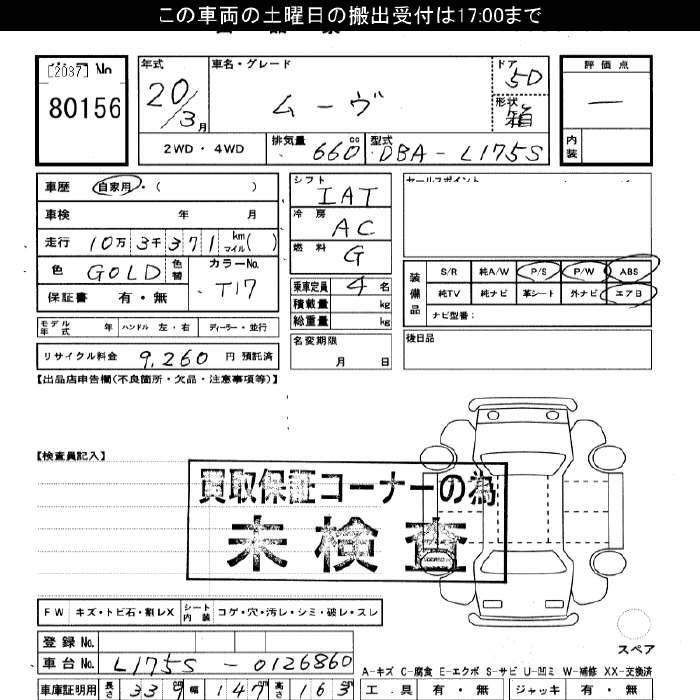 この車両の土曜日の搬出受付は17:00まで
[2037] No
80156
年式
20/3月
車名・グレード
ムーヴ
ドア
5D
形状
箱
評価点
—
内装
2WD・4WD
排気量
660cc
型式
DBA-L175S
車歴
自家用・( )
車検 年 月
走行 10万3千371km マイル( )
色 GOLD
色替
カラーNo.
T17
保証書 有・無
モデル年式 年 ハンドル 左・右 ディーラー・並行
リサイクル料金 9,260 円 預託済
シフト
IAT
冷房
AC
燃料
G
乗車定員 4 名
積載量 kg
総重量 kg
名変期限
月 日
セールスポイント
装備品
S/R 純A/W P/S P/W ABS
純TV 純ナビ 革シート 外ナビ エアB
ナビ型番:
後日品
【出品店申告欄(不良箇所・欠品・注意事項等)】
【検査員記入】
買取保証コーナーの為
未検査
FW キズ・トビ石・割レX シート内装 コゲ・穴・汚レ・シミ・破レ・スレ
登録No.
車台No. L175S-0126860
スペア
A-キズ C-腐食 E-エクボ S-サビ U-凹ミ W-補修 XX-交換済
車庫証明用 長さ 339 幅 147 高さ 163
工具 有・無 ジャッキ 有・無